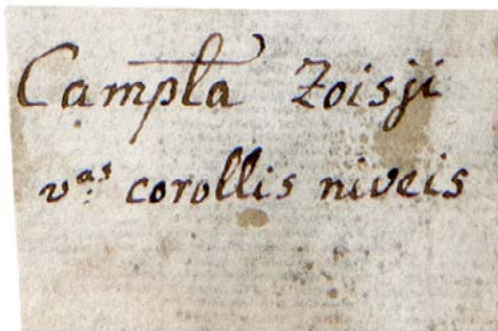 Campla Zoisji
vas corollis niveis